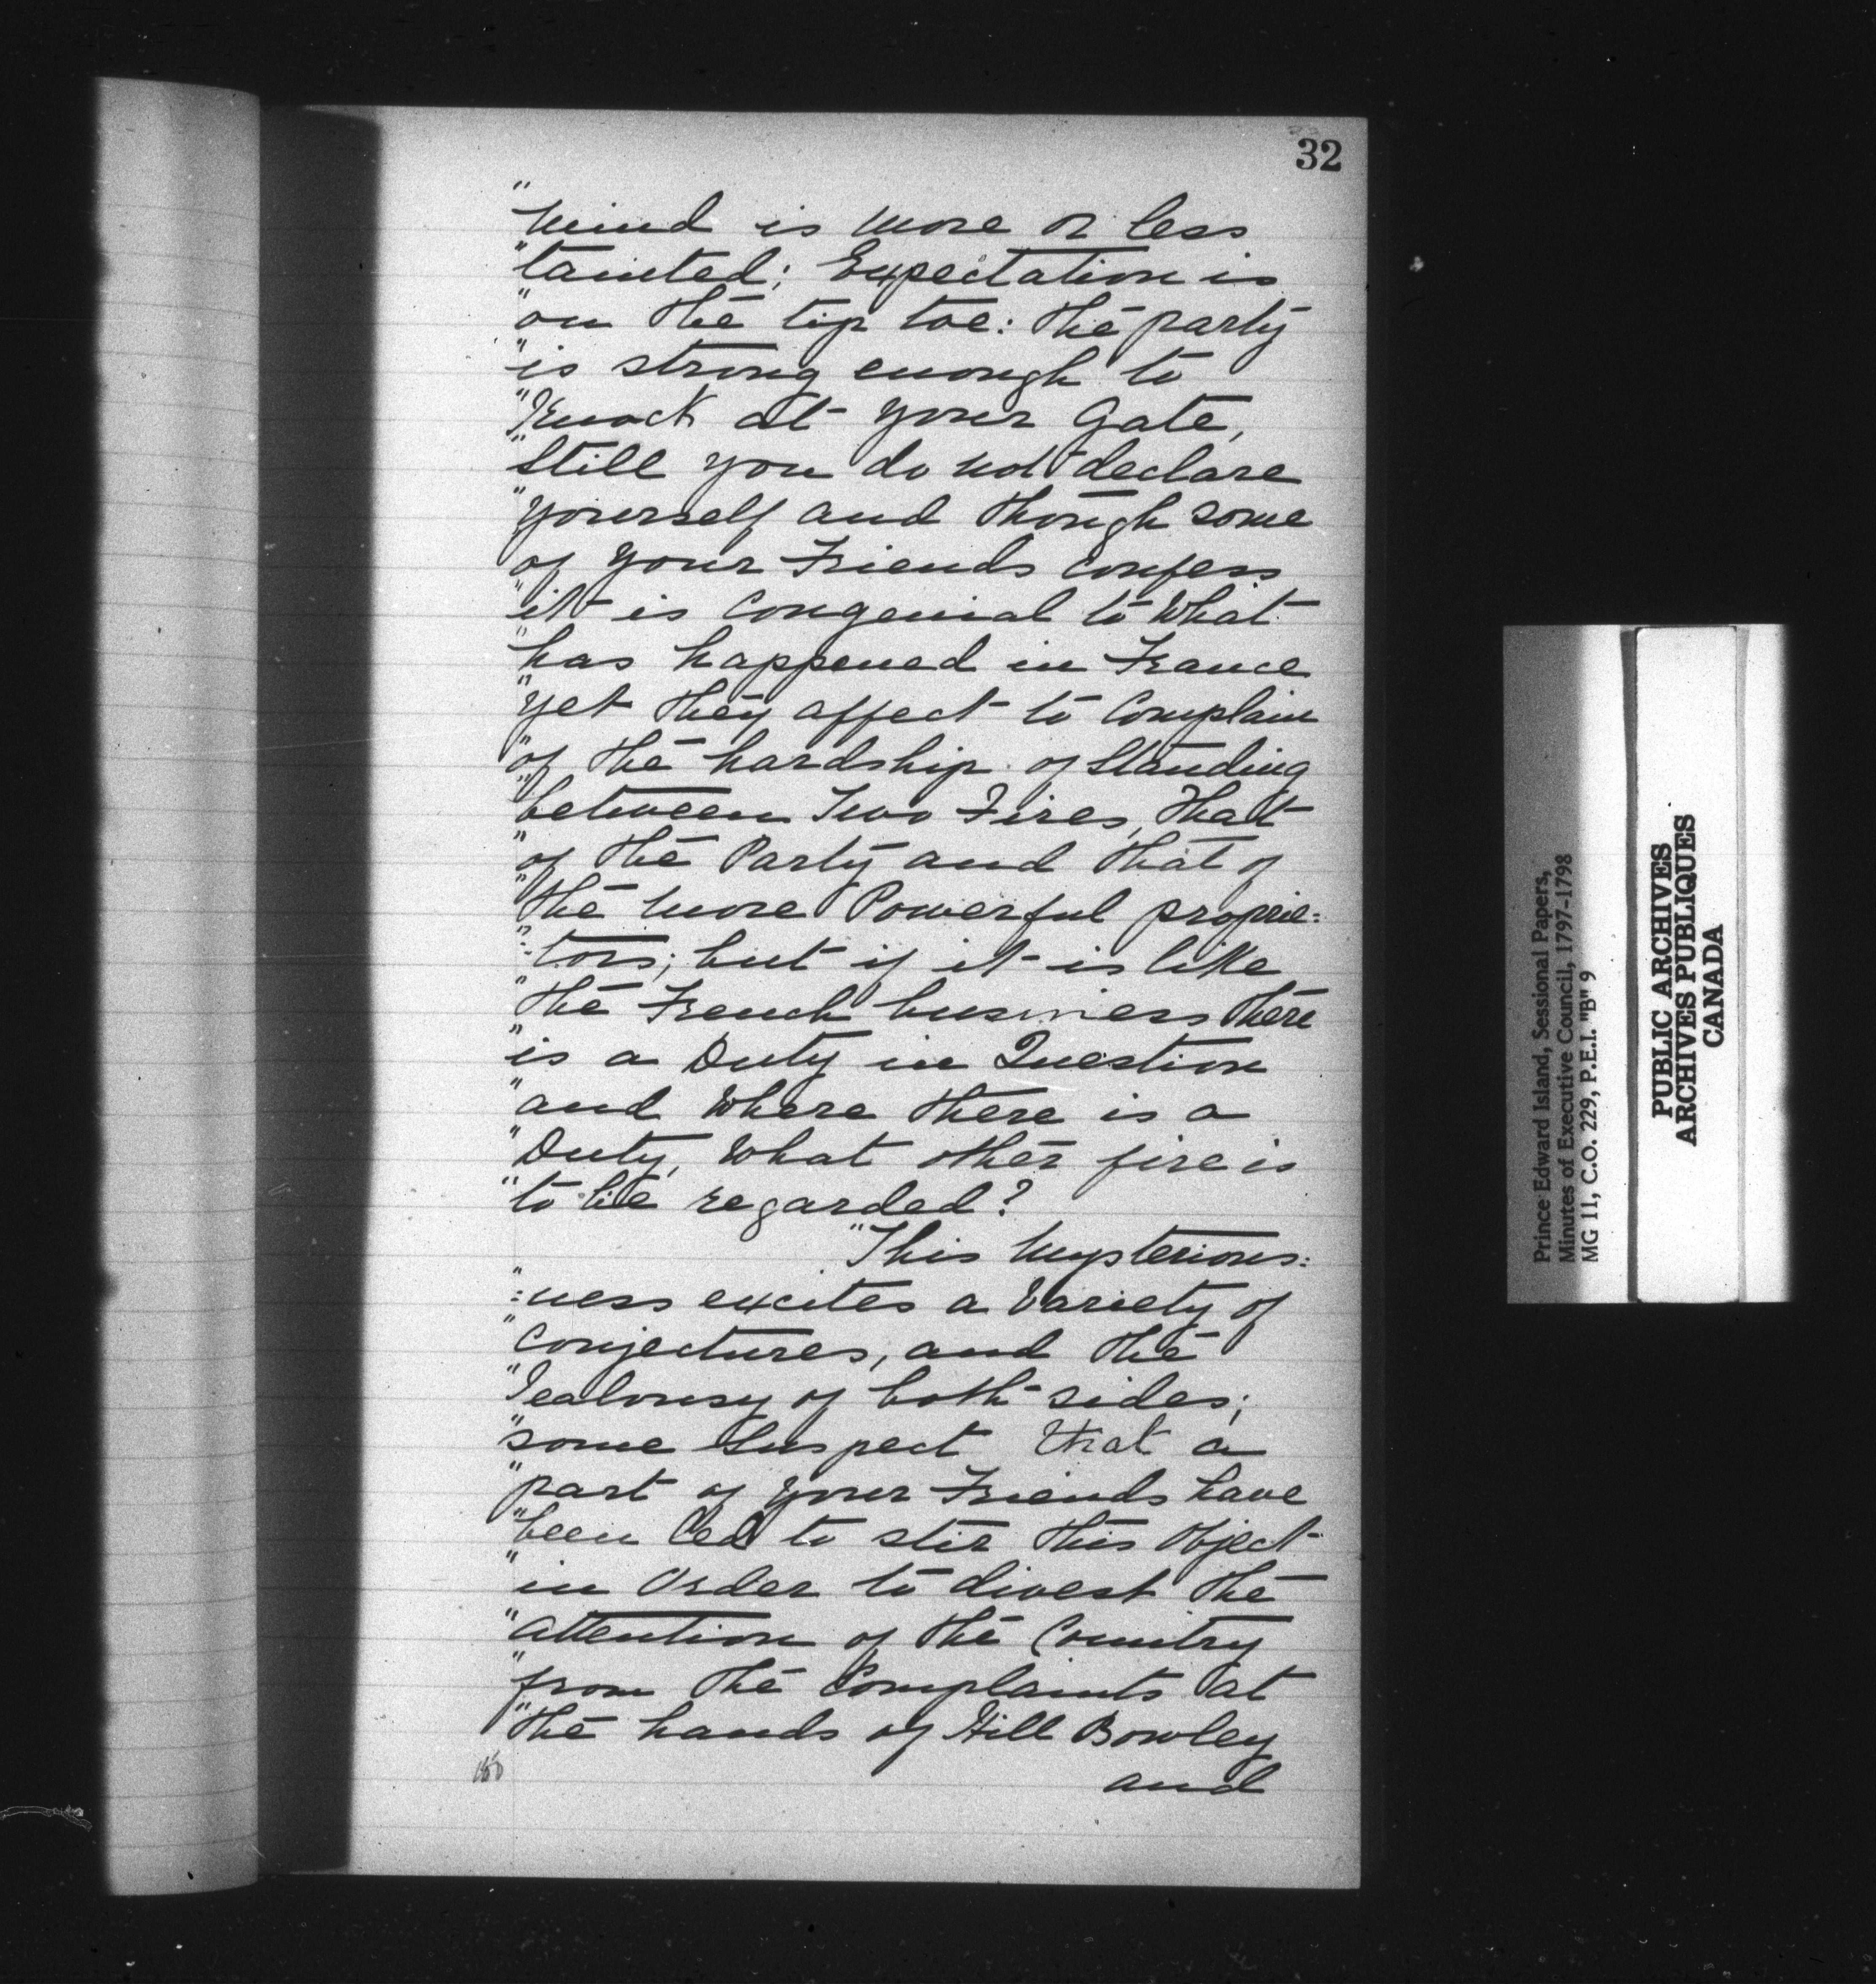 32
"mind is more or less
"tainted; Expectation is
"on the tip toe: the party
"is strong enough to
"Knock at your Gate,
"Still you do not declare
"yourself and though some
of your Friends confess
"it is Congenial to What
"has happened in France
"yet they affect to Complain
"of the hardship of Standing
"between Two Fires, that
"of the Party and that of
"the more Powerful proprie=
"=tors; but if it is like
"the French business there
"is a Duty in Question
"and Where there is a
"Duty, What other fire is
"to be regarded?
"This Mysterious=
"=ness excites a Variety of
"Conjectures, and the
"Jealousy of both sides;
"some Suspect that a
"part of your Friends have
"been led to stir this Object
"in Order to divest the
"attention of the Country
"from the Complaints at
"the hands of Hill Bowley
and
Prince Edward Island, Sessional Papers,
Minutes of Executive Council, 1797-1798
MG 11, C.O. 229, P.E.I. "B" 9
PUBLIC ARCHIVES
ARCHIVES PUBLIQUES
CANADA